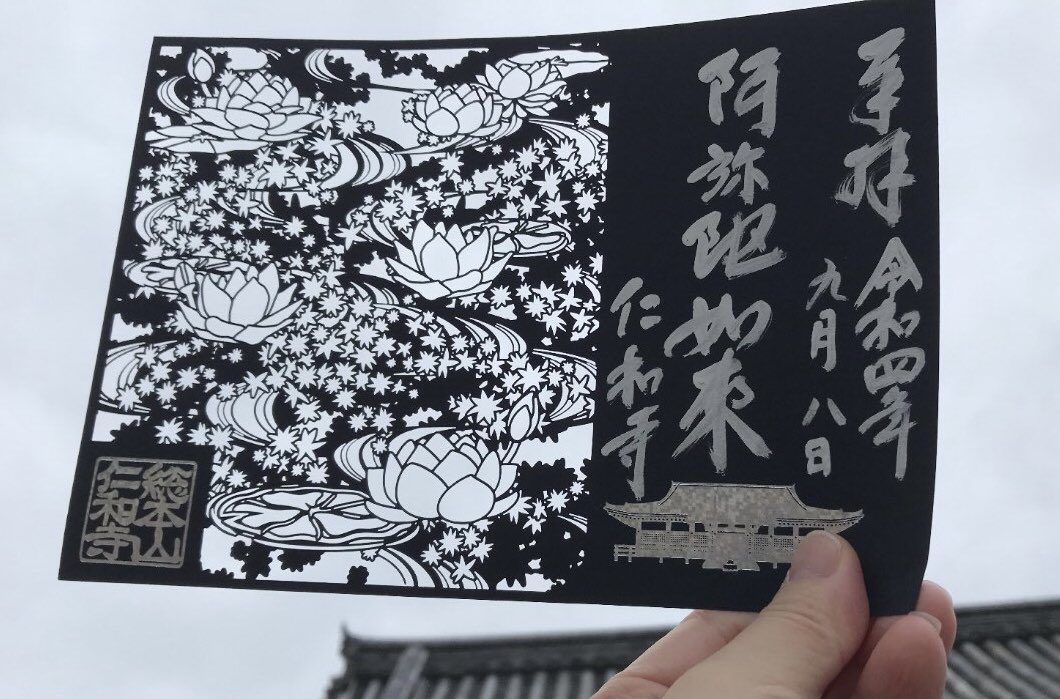 奉拝 令和四年
九月八日
阿弥陀如来
仁和寺
総本山
仁和寺